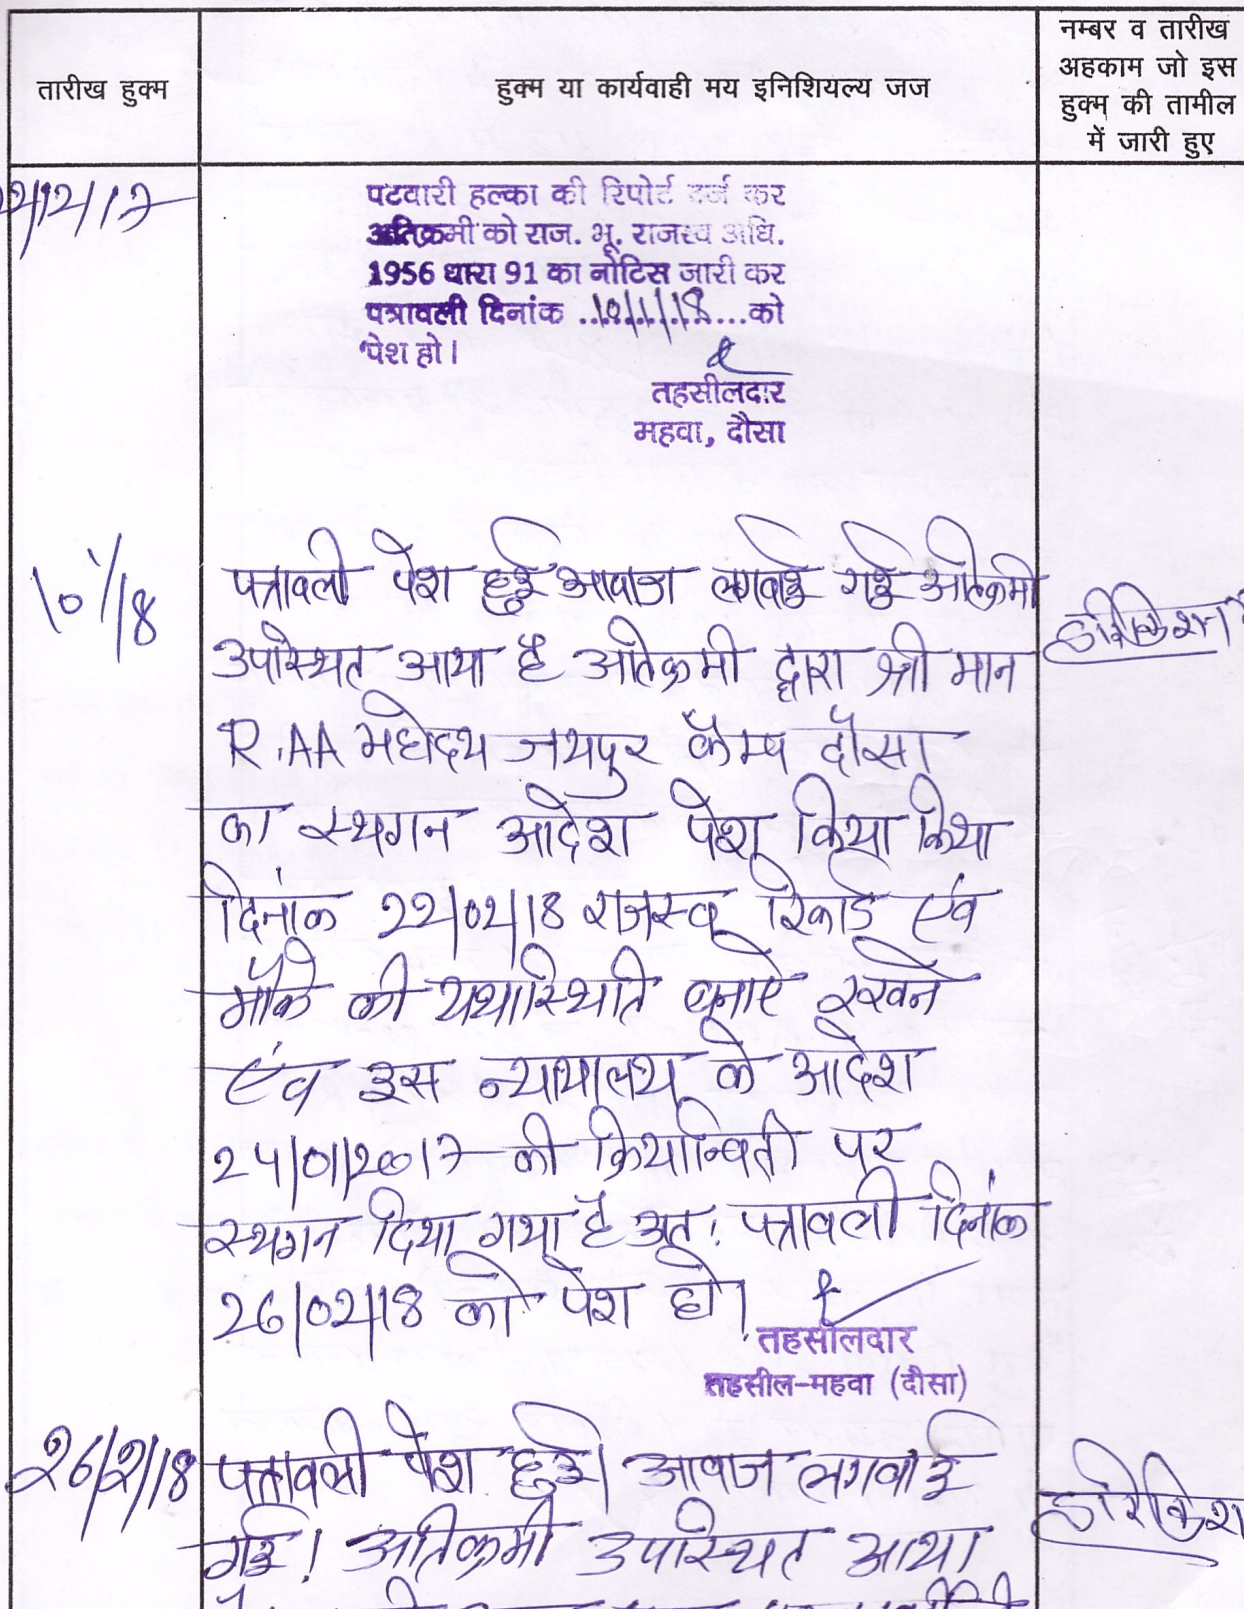 तारीख हुक्म
हुक्म या कार्यवाही मय इनिशियल्य जज
नम्बर व तारीख
अहकाम जो इस
हुक्म की तामील
में जारी हुए
पटवारी हल्का की रिपोर्ट दर्ज कर
अतिक्रमी को राज. भू. राजस्व अधि.
1956 धारा 91 का नोटिस जारी कर
पत्रावली दिनांक 10/1/18 को
पेश हो।
तहसीलदार
महवा, दौसा
10/1/18
पत्रावली पेश हुई आवाज लगवाई गई अतिक्रमी
उपस्थित आया है अतिक्रमी द्वारा श्री मान
R.AA महोदय जयपुर कैम्प दौसा
का स्थगन आदेश पेश किया किया
दिनांक 22/02/18 राजस्व रिकार्ड एंव
मौके की यथास्थिति बनाऐ रखने
एंव इस न्यायालय के आदेश
24/01/2017 की क्रियान्विती पर
स्थगन दिया गया है अत: पत्रावली दिनांक
26/02/18 को पेश हो।
तहसीलदार
तहसील-महवा (दौसा)
हरिकिशन
26/2/18
पत्रावली पेश हुई। आवाज लगवाई
गई। अतिक्रमी उपस्थित आया
हरिकिश